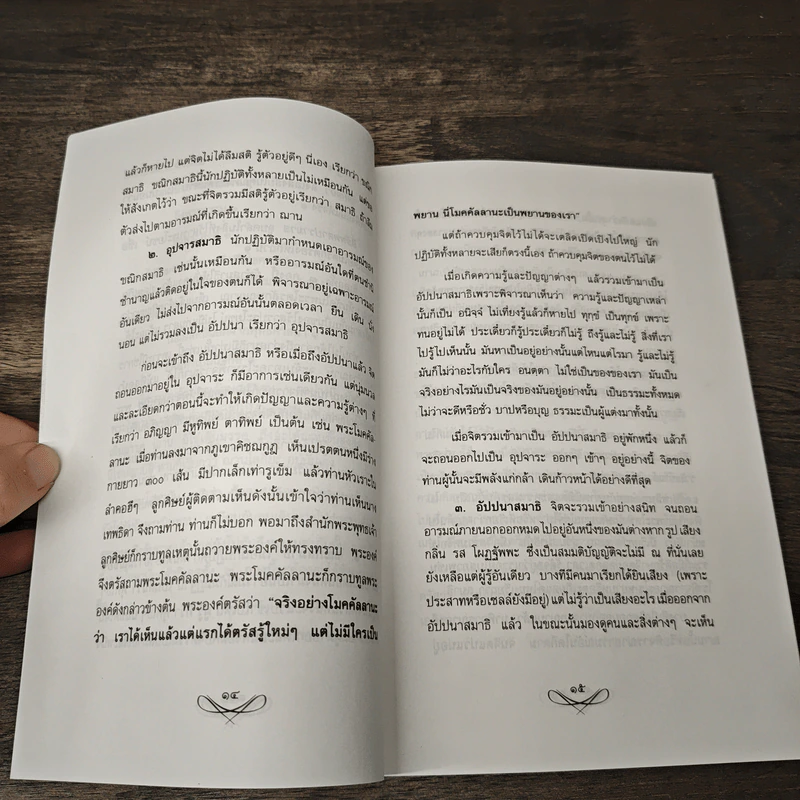 แล้วก็หายไป แต่จิตไม่ได้ลืมสติ รู้ตัวอยู่ดีๆ นี่เอง เรียกว่า ขณิก
สมาธิ ขณิกสมาธินี้นักปฏิบัติทั้งหลายเป็นไม่เหมือนกัน
ให้สังเกตไว้ว่า ขณะที่จิตรวมมีสติรู้ตัวอยู่เรียกว่า สมาธิ ถ้าลืม
ตัวส่งไปตามอารมณ์ที่เกิดขึ้นเรียกว่า ฌาน
๒. อุปจารสมาธิ นักปฏิบัติมากำหนดเอาอารมณ์ของ
ขณิกสมาธิ เช่นนั้นเหมือนกัน หรืออารมณ์อันใดที่ตน
ชำนาญแล้วติดอยู่ในใจของตนก็ได้ พิจารณาอยู่เฉพาะอารมณ์
อันเดียว ไม่ส่งไปจากอารมณ์อันนั้นตลอดเวลา ยืน เดิน นั่ง
นอน แต่ไม่รวมลงเป็น อัปปนา เรียกว่า อุปจารสมาธิ
ก่อนจะเข้าถึง อัปปนาสมาธิ หรือเมื่อถึงอัปปนาแล้ว จิต
ถอนออกมาอยู่ใน อุปจาระ ก็มีอาการเช่นเดียวกัน แต่นุ่มนวล
และละเอียดกว่าตอนนี้จะทำให้เกิดปัญญาและความรู้ต่างๆ ที่
เรียกว่า อภิญญา มีหูทิพย์ ตาทิพย์ เป็นต้น เช่น พระโมคคัล-
ลานะ เมื่อท่านลงมาจากภูเขาคิชฌกูฏ เห็นเปรตตนหนึ่งมีร่าง
กายยาว ๓๐๐ เส้น มีปากเล็กเท่ารูเข็ม แล้วท่านหัวเราะใน
ลำคอฮึๆ ลูกศิษย์ผู้ติดตามเห็นดังนั้นเข้าใจว่าท่านเห็นนาง
เทพธิดา จึงถามท่าน ท่านก็ไม่บอก พอมาถึงสำนักพระพุทธเจ้า
ลูกศิษย์ก็กราบทูลเหตุนั้นถวายพระองค์ให้ทรงทราบ พระองค์
จึงตรัสถามพระโมคคัลลานะ พระโมคคัลลานะก็กราบทูลพระ
องค์ดังกล่าวข้างต้น พระองค์ตรัสว่า "จริงอย่างโมคคัลลานะ
ว่า เราได้เห็นแล้วแต่แรกได้ตรัสรู้ใหม่ๆ แต่ไม่มีใครเป็น
๑๔
พยาน นี่โมคคัลลานะเป็นพยานของเรา"
แต่ถ้าควบคุมจิตไว้ไม่ได้จะเตลิดเปิดเปิงไปใหญ่ นัก
ปฏิบัติทั้งหลายจะเสียก็ตรงนี้เอง ถ้าควบคุมจิตของตนไว้ไม่ได้
เมื่อเกิดความรู้และปัญญาต่างๆ แล้วรวมเข้ามาเป็น
อัปปนาสมาธิเพราะพิจารณาเห็นว่า ความรู้และปัญญาเหล่า
นั้นก็เป็น อนิจจํ ไม่เที่ยงรู้แล้วก็หายไป ทุกขํ เป็นทุกข์ เพราะ
ทนอยู่ไม่ได้ ประเดี๋ยวก็รู้ประเดี๋ยวก็ไม่รู้ ถึงรู้และไม่รู้ สิ่งที่เรา
ไปรู้ไปเห็นนั้น มันหาเป็นอยู่อย่างนั้นแต่ไหนแต่ไรมา รู้และไม่รู้
มันก็ไม่ว่าอะไรกับใคร อนตฺตา ไม่ใช่เป็นของของเรา มันเป็น
จริงอย่างไรมันเป็นจริงของมันอยู่อย่างนั้น เป็นธรรมะทั้งหมด
ไม่ว่าจะดีหรือชั่ว บาปหรือบุญ ธรรมะเป็นผู้แต่งมาทั้งนั้น
เมื่อจิตรวมเข้ามาเป็น อัปปนาสมาธิ อยู่พักหนึ่ง แล้วก็
จะถอนออกไปเป็น อุปจาระ ออกๆ เข้าๆ อยู่อย่างนี้ จิตของ
ท่านผู้นั้นจะมีพลังแก่กล้า เดินก้าวหน้าได้อย่างดีที่สุด
๓. อัปปนาสมาธิ จิตจะรวมเข้าอย่างสนิท จนถอน
อารมณ์ภายนอกออกหมดไปอยู่อันหนึ่งของมันต่างหาก รูป เสียง
กลิ่น รส โผฏฐัพพะ ซึ่งเป็นสมมติบัญญัติจะไม่มี ณ ที่นั่นเลย
ยังเหลือแต่ผู้รู้อันเดียว บางทีมีคนมาเรียกได้ยินเสียง (เพราะ
ประสาทหรือเซลล์ยังมีอยู่) แต่ไม่รู้ว่าเป็นเสียงอะไร เมื่อออกจาก
อัปปนาสมาธิ แล้ว ในขณะนั้นมองดูคนและสิ่งต่างๆ จะเห็น
๑๕